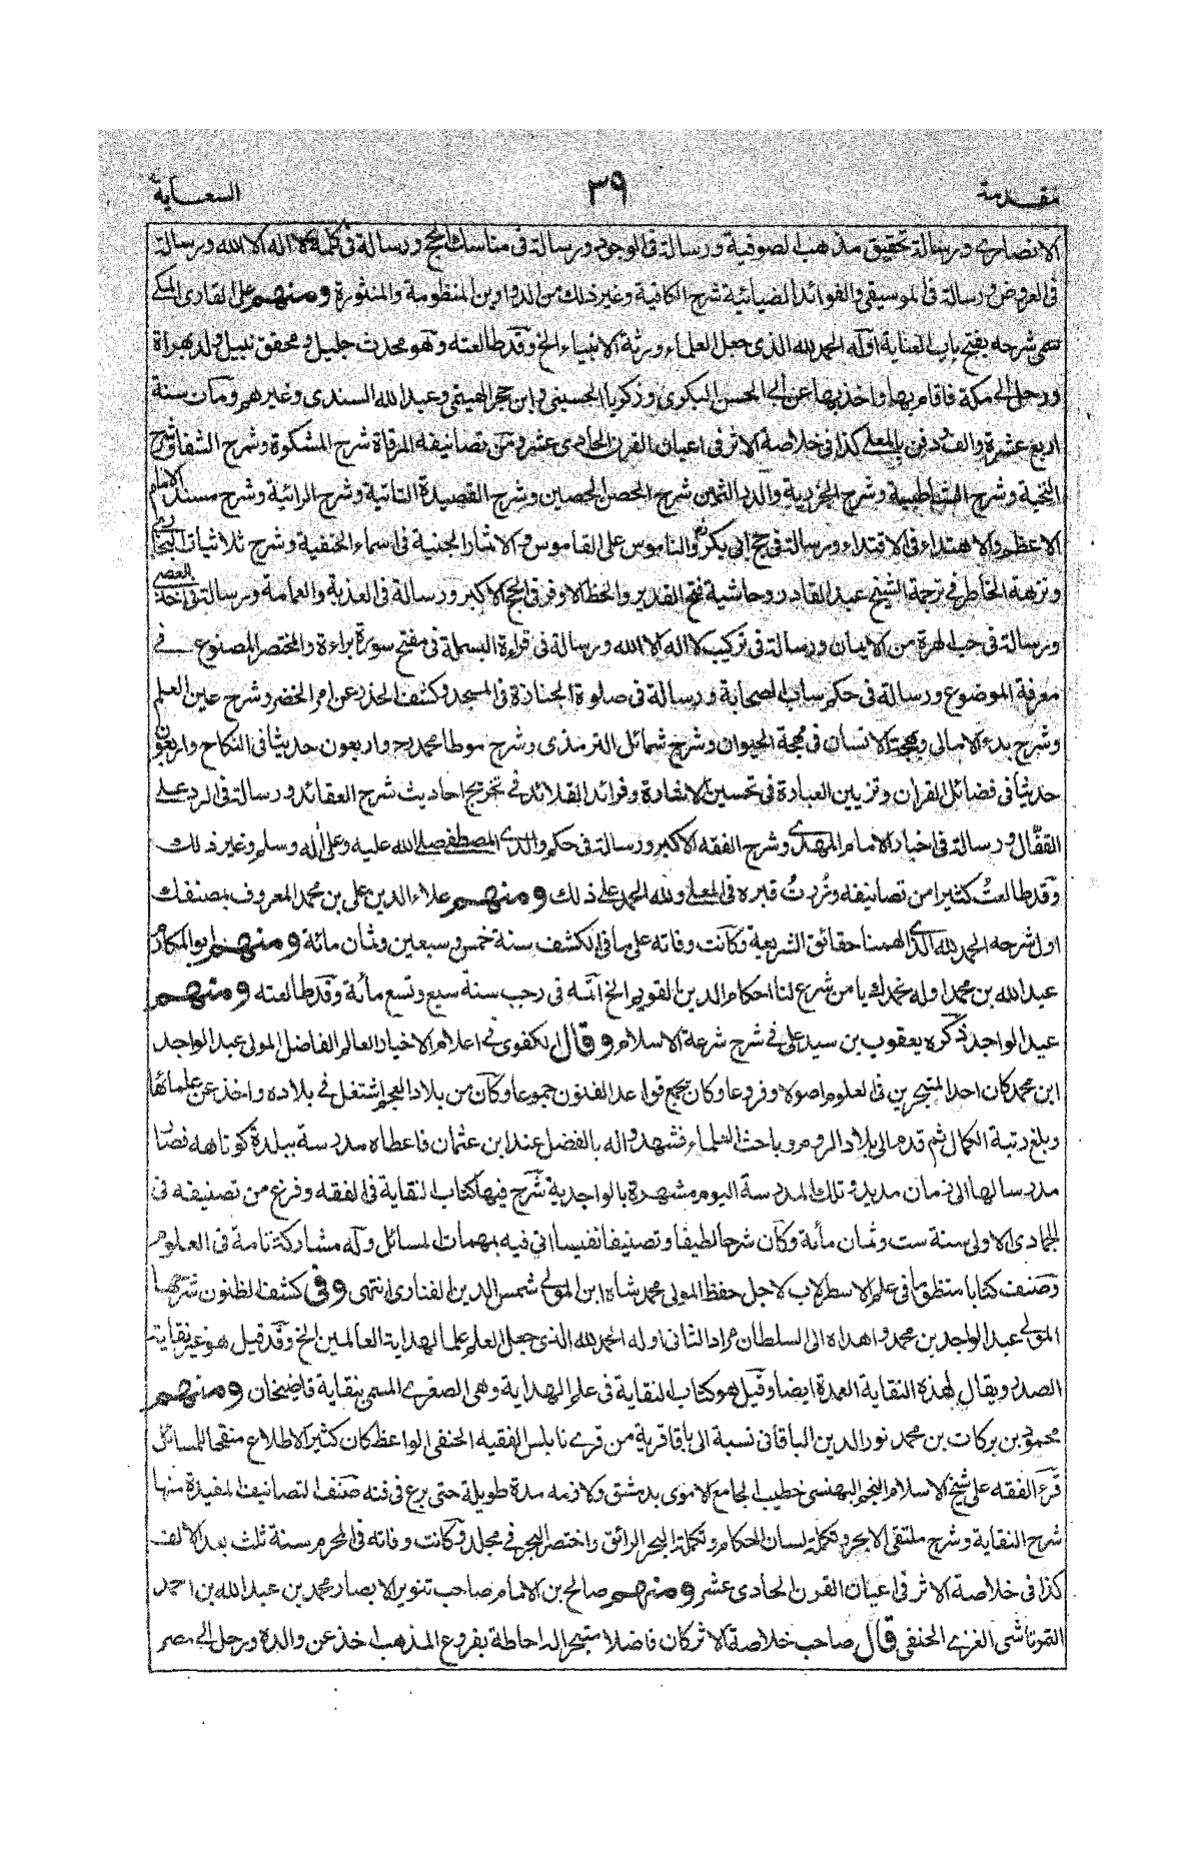 مقدمة ٣٩ السعاية
الانصاري ورسالة تحقيق مذهب الصوفية ورسالة في الوجود ورسالة في مناسك الحج ورسالة في كلمة لا اله الا الله ورسالة
في العروض ورسالة في الموسيقي والفوائد الضيائية شرح الكافية وغير ذلك من الدواوين المنظومة والمنثورة ومنهم علي القاري المكي
سمى شرحه بفتح باب العناية اوله الحمد لله الذي جعل العلماء ورثة الانبياء الخ وقد طالعته وهو محدث جليل ومحقق نبيل ولد بهراة
ورحل الى مكة فاقام بها واخذ بها عن ابي الحسن البكري وزكريا الحسيني وابن حجر الهيتمي وعبد الله السندي وغيرهم ومات سنة
اربع عشرة والف ودفن بالمعلى كذا في خلاصة الاثر في اعيان القرن الحادي عشر ومن تصانيفه المرقاة شرح المشكوة وشرح الشفا وشرح
النخبة وشرح الشاطبية وشرح الجزرية والدر الثمين شرح الحصن الحصين وشرح القصيدة التائية وشرح الرائية وشرح مسند الامام
الاعظم والاهتداء في الاقتداء ورسالة في حج ابي بكر والناموس على القاموس والاثمار الجنية في اسماء الحنفية وشرح ثلاثيات البخاري
ونزهة الخاطر في ترجمة الشيخ عبد القادر وحاشية فتح القدير والحظ الاوفر في الحج الاكبر ورسالة في العذبة والعمامة ورسالة في اخذ العصى
ورسالة في حب الهرة من الايمان ورسالة في تركيب لا اله الا الله ورسالة في قراءة البسملة في مفتح سورة براءة والمختصر المصنوع في
معرفة الموضوع ورسالة في حكم ساب الصحابة ورسالة في صلوة الجنازة في المسجد وكشف الحذر عن امر الخضر وشرح عين العلم
وشرح بدء الامالي وبهجة الانسان في مهجة الحيوان وشرح شمائل الترمذي وشرح موطا محمد واربعون حديثا في النكاح واربعون
حديثا في فضائل القران وتزيين العبارة في تحسين الاشارة وفرائد القلائد في تخريج احاديث شرح العقائد ورسالة في الرد على
القفال ورسالة في اخبار الامام المهدي وشرح الفقه الاكبر ورسالة في حكم والدي المصطفى صلى الله عليه وعلى اله وسلم وغير ذلك
وقد طالعت كثيرا من تصانيفه وزرت قبره في المعلى ولله الحمد على ذلك ومنهم علاء الدين علي بن محمد المعروف بمصنفك
اول شرحه الحمد لله الذي الهمنا حقائق الشريعة وكانت وفاته على ما في الكشف سنة خمس وسبعين وثمان مائة ومنهم ابو المكارم
عبد الله بن محمد اوله نحمدك يا من شرع لنا احكام الدين القويم الخ اتمه في رجب سنة سبع وتسع مأئة وقد طالعته ومنهم
عبد الواجد ذكره يعقوب بن سيد علي في شرح شرعة الاسلام وقال الكفوي في اعلام الاخيار العالم الفاضل المولى عبد الواجد
ابن محمد كان احد المتبحرين في العلوم اصولا وفروعا وكان يجمع قواعد الفنون جموعا وكان من بلاد العجم اشتغل في بلاده واخذ عن علمائها
وبلغ رتبة الكمال ثم قدم الى بلاد الروم وباحث العلماء فشهدوا له بالفضل عند ابن عثمان فاعطاه مدرسة ببلدة كوتاهه فصار
مدرسا لها الى زمان مديد تلك المدرسة اليوم مشهرة بالواجدية شرح فيها كتاب النقاية في الفقه وفرغ من تصنيفه في
الجمادى الاولى سنة ست وثمان مأئة وكان شرحا لطيفا وتصنيفا نفيسا اتي فيه بمهمات المسائل وله مشاركة تامة في العلوم
وصنف كتابا منظوما في علم الاسطرلاب لاجل حفظ المولى محمد شاه ابن المولى شمس الدين الفناري انتهى وفي كشف الظنون شرحها
المولى عبد الواجد بن محمد واهداه الى السلطان مراد الثاني اوله الحمد لله الذي جعل العلم علما لهداية العالمين الخ وقد قيل هو غير نقاية
الصدر ويقال لهذه النقاية العمدة ايضا وقيل هو كتاب النقاية في علم الهداية وهي الصغرى المسمى بنقاية قاضيخان ومنهم
محمود بن بركات بن محمد نور الدين الباقاني نسبة الى باقا قرية من قرى نابلس الفقيه الحنفي الواعظ كان كثير الاطلاع منقحا للمسائل
قرء الفقه على شيخ الاسلام النجم البهنسي خطيب الجامع الاموي بدمشق ولازمه مدة طويلة حتى برع في فنه صنف التصانيف المفيدة منها
شرح النقاية وشرح ملتقى الابحر وتكملة لسان الحكام وتكملة البحر الرائق واختصر البحر في مجلد وكانت وفاته في المحرم سنة ثلث بعد الالف
كذا في خلاصة الاثر في اعيان القرن الحادي عشر ومنهم صالح بن الامام صاحب تنوير الابصار محمد بن عبد الله بن احمد
التمرتاشي الغزي الحنفي قال صاحب خلاصة الاثر كان فاضلا متبحرا له احاطة بفروع المذهب اخذ عن والده ورحل الى مصر